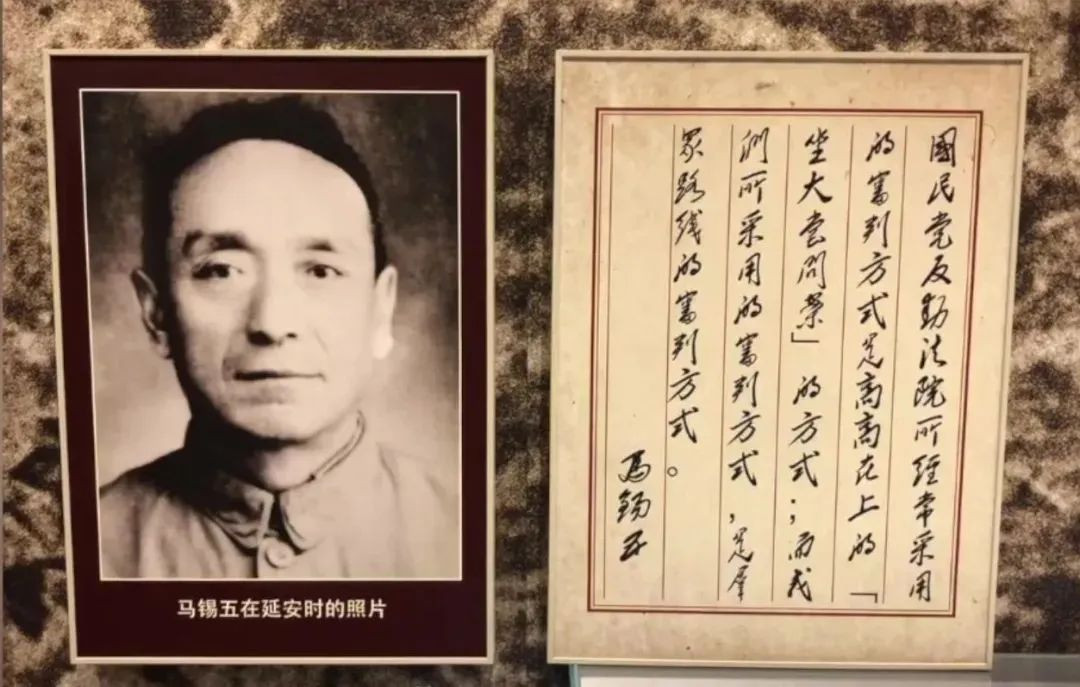 马锡五在延安时的照片
國民党反動法院所经常采用
的審判方式是高高在上的「
坐大堂問案」的方式；而我
们所采用的審判方式，是羣
眾路线的審判方式。
馬锡五